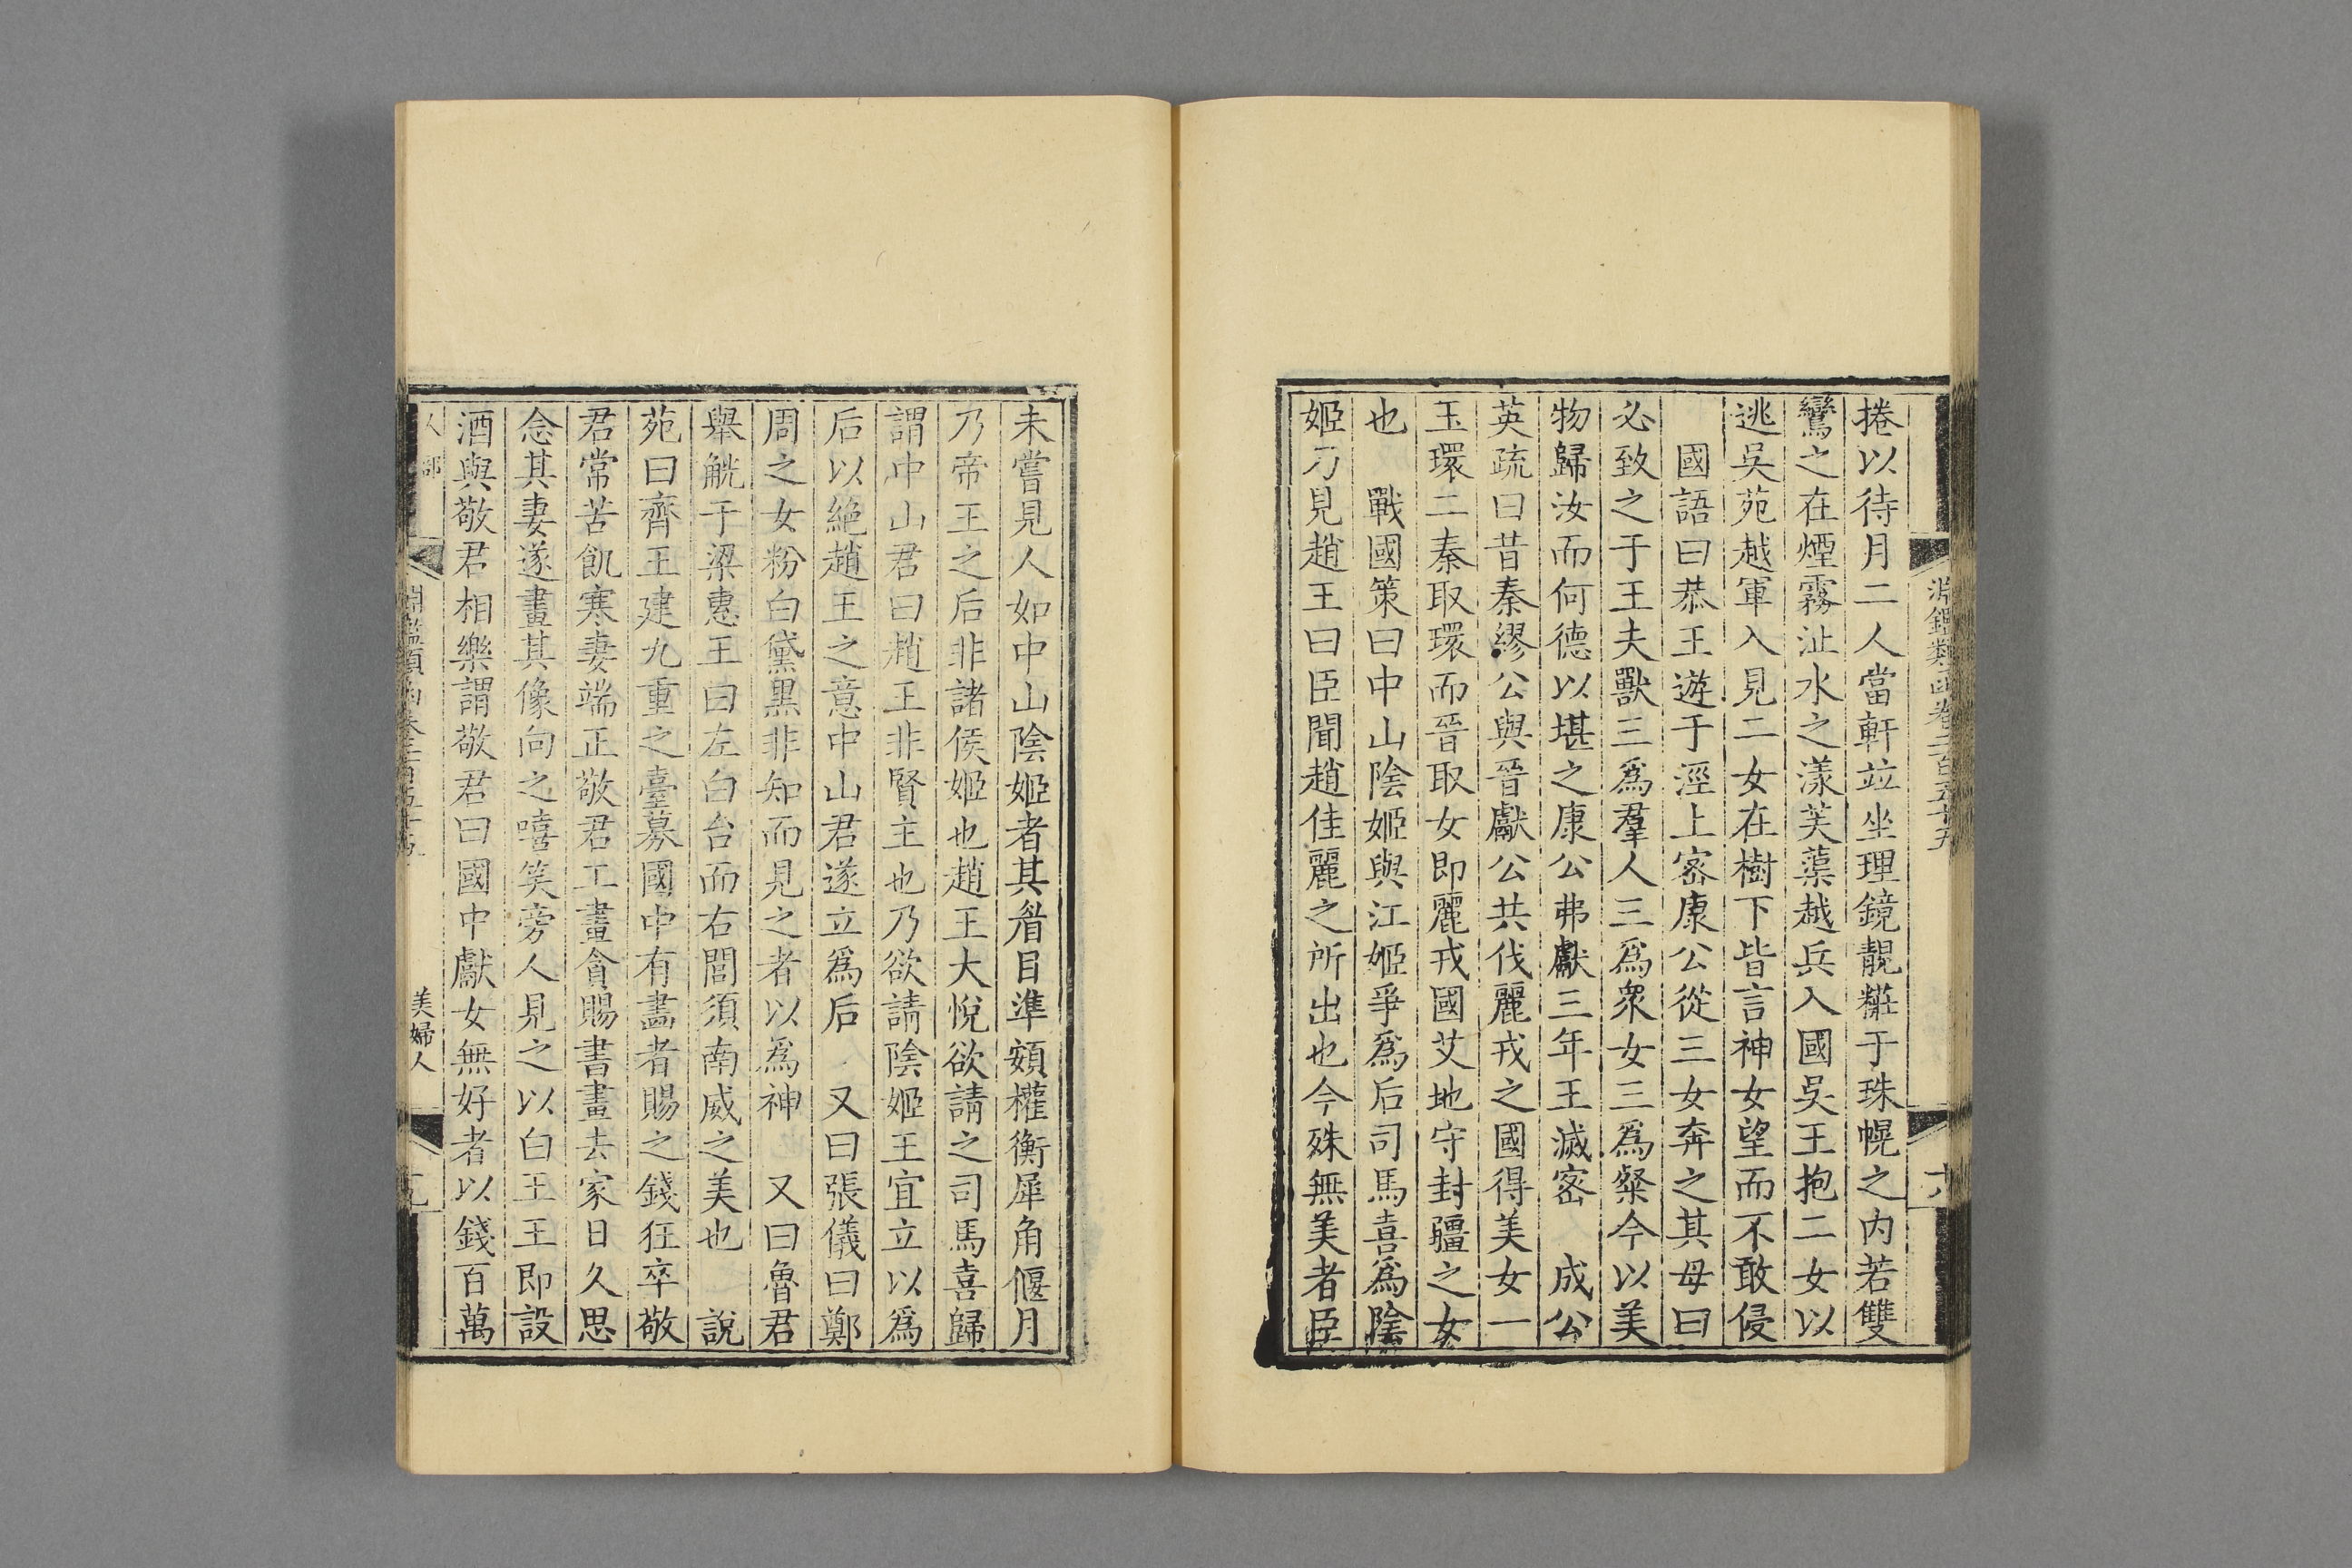 淵鑑類函卷二百五十五
捲以待月二人當軒竝坐理鏡靚糚于珠幌之内若雙
鸞之在煙霧沚水之漾芙蕖越兵入國吳王抱二女以
逃吳苑越軍入見二女在樹下皆言神女望而不敢侵
國語曰恭王遊于涇上密康公從三女奔之其母曰
必致之于王夫獸三爲羣人三爲衆女三爲粲今以美
物歸汝而何德以堪之康公弗獻三年王滅密　成公
英疏曰昔秦繆公與晉獻公共伐麗戎之國得美女一
玉環二秦取環而晉取女即麗戎國艾地守封疆之女
也　戰國策曰中山陰姬與江姬爭爲后司馬喜爲陰
姬乃見趙王曰臣聞趙佳麗之所出也今殊無美者臣
未嘗見人如中山陰姬者其眉目準頞權衡犀角偃月
乃帝王之后非諸侯姬也趙王大悅欲請之司馬喜歸
謂中山君曰趙王非賢主也乃欲請陰姬王宜立以爲
后以絕趙王之意中山君遂立爲后　又曰張儀曰鄭
周之女粉白黛黑非知而見之者以爲神　又曰魯君
舉觥于梁惠王曰左白台而右閭須南威之美也　說
苑曰齊王建九重之臺募國中有畵者賜之錢狂卒敬
君常苦飢寒妻端正敬君工畫貪賜書畫去家日久思
念其妻遂畫其像向之嘻笑旁人見之以白王王即設
酒與敬君相樂謂敬君曰國中獻女無好者以錢百萬
人部
淵鑑類函卷二百五十五
美婦人